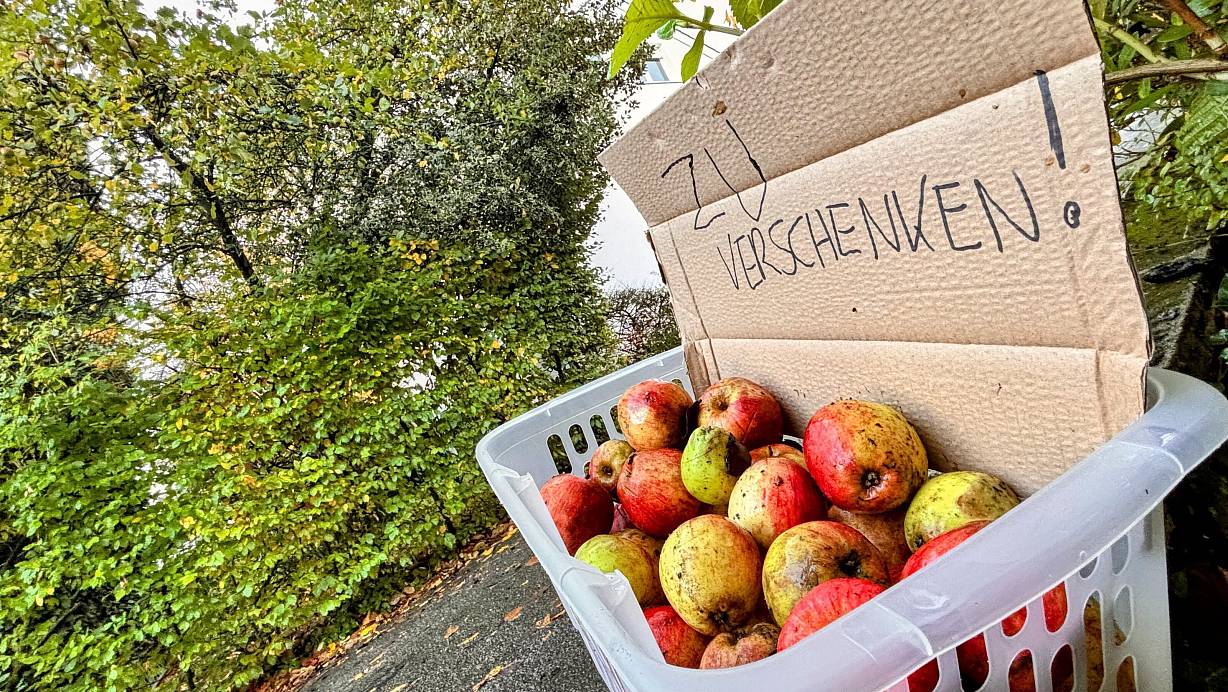 ZU
VERSCHENKEN!